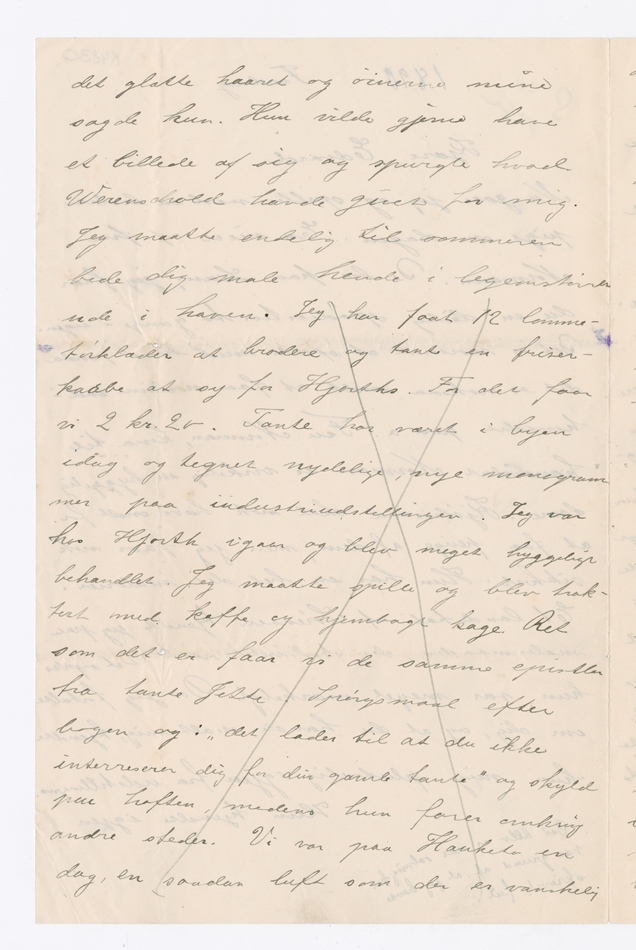 det glatte haaret og öinerne mine
sagde hun. Hun vilde gjerne have
et billede af sig og spurgte hvad
Werenskiold havde giort for mig.
Jeg maatte endelig til sommeren
bede dig male hende i legemstörrelse
ude i haven. Jeg har faat 12 lomme-
törklæder at brodere og tante en friser-
kaabe at sy for Hjorths. For det faar
vi 2 kr. 20. Tante har været i byen
idag og tegnet nydelige, nye monogram
mer paa industriudstillingen. Jeg var
hos Hjorth igaar og blev meget hyggeligt
behandlet. Jeg maatte spille og blev trak-
tert med kaffe og hjembagt kage. Ret
som det er faar vi de samme epistler
fra tante Jette. Spörgsmaal efter
bogen og: „det lader til at du ikke
interreserer dig for din gamle tante" og skyld
paa hoften, medens hun farer omkring
andre steder. Vi var paa Hauketo en
dag, en saadan luft som der er vanskelig